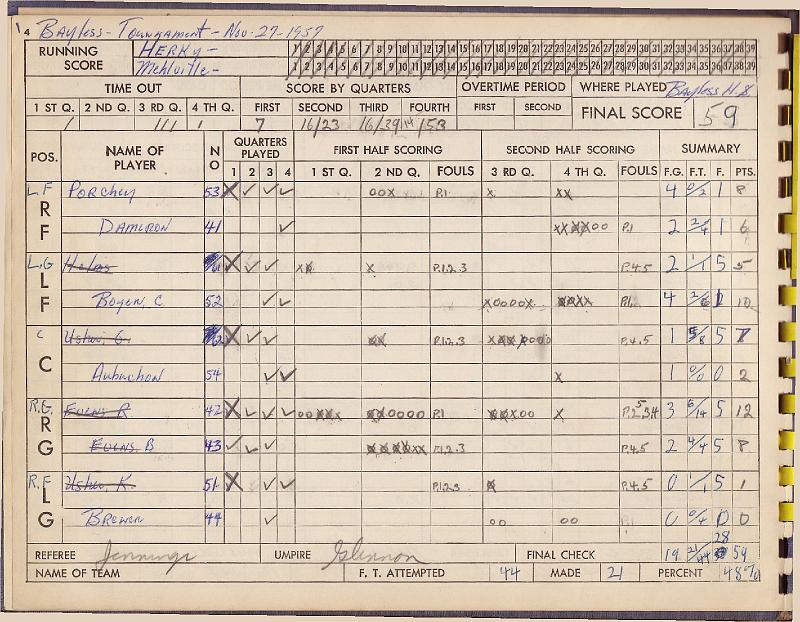 14 Bayless - Tournament - Nov-27-1957
RUNNING SCORE HERKY - 1 2 3 4 5 6 7 8 9 10 11 12 13 14 15 16 17 18 19 20 21 22 23 24 25 26 27 28 29 30 31 32 33 34 35 36 37 38 39
Mehlville - 1 2 3 4 5 6 7 8 9 10 11 12 13 14 15 16 17 18 19 20 21 22 23 24 25 26 27 28 29 30 31 32 33 34 35 36 37 38 39
TIME OUT SCORE BY QUARTERS OVERTIME PERIOD WHERE PLAYED Bayless H.S
1 ST Q. 2 ND Q. 3 RD Q. 4 TH Q. FIRST SECOND THIRD FOURTH FIRST SECOND FINAL SCORE 59
/ /// / 7 16/23 16/39 14/53
POS. NAME OF PLAYER NO QUARTERS PLAYED FIRST HALF SCORING SECOND HALF SCORING SUMMARY
1 2 3 4 1 ST Q. 2 ND Q. FOULS 3 RD Q. 4 TH Q. FOULS F.G. F.T. F. PTS.
L.F RF Porchey 53 X ✓ ✓ ✓ oox P.1 x xx 4 0/2 1 8
Dameron 41 ✓ xxxxxoo P.1 2 2/4 1 6
L.G LF Helms X ✓ ✓ xx x P.1.2.3 P.4.5 2 1/1 5 5
Boyer, C 52 ✓ ✓ xoooox xxxx P.1. 4 10
C C Usher, G. X ✓ ✓ xx P.1.2.3 P.4.5 1 5/8 5 7
Aubuchon 54 ✓ ✓ x 1 0/0 0 2
R.G RG Evens R 42 X ✓ ✓ ✓ ooxxx xxoooo P.1 xxxoo x 3 6/14 5 12
Evens. B 43 ✓ ✓ ✓ P.1.2.3 P.4.5 2 4/4 5 8
R.F LG Usher, K. 51 X ✓ ✓ P.1.2.3 x P.4.5 0 1/1 5 1
Brewer 44 ✓ oo oo 0 0/4 0 0
28
REFEREE Jennings UMPIRE Glennon FINAL CHECK 19 21/44 59
NAME OF TEAM F. T. ATTEMPTED 44 MADE 21 PERCENT 48%